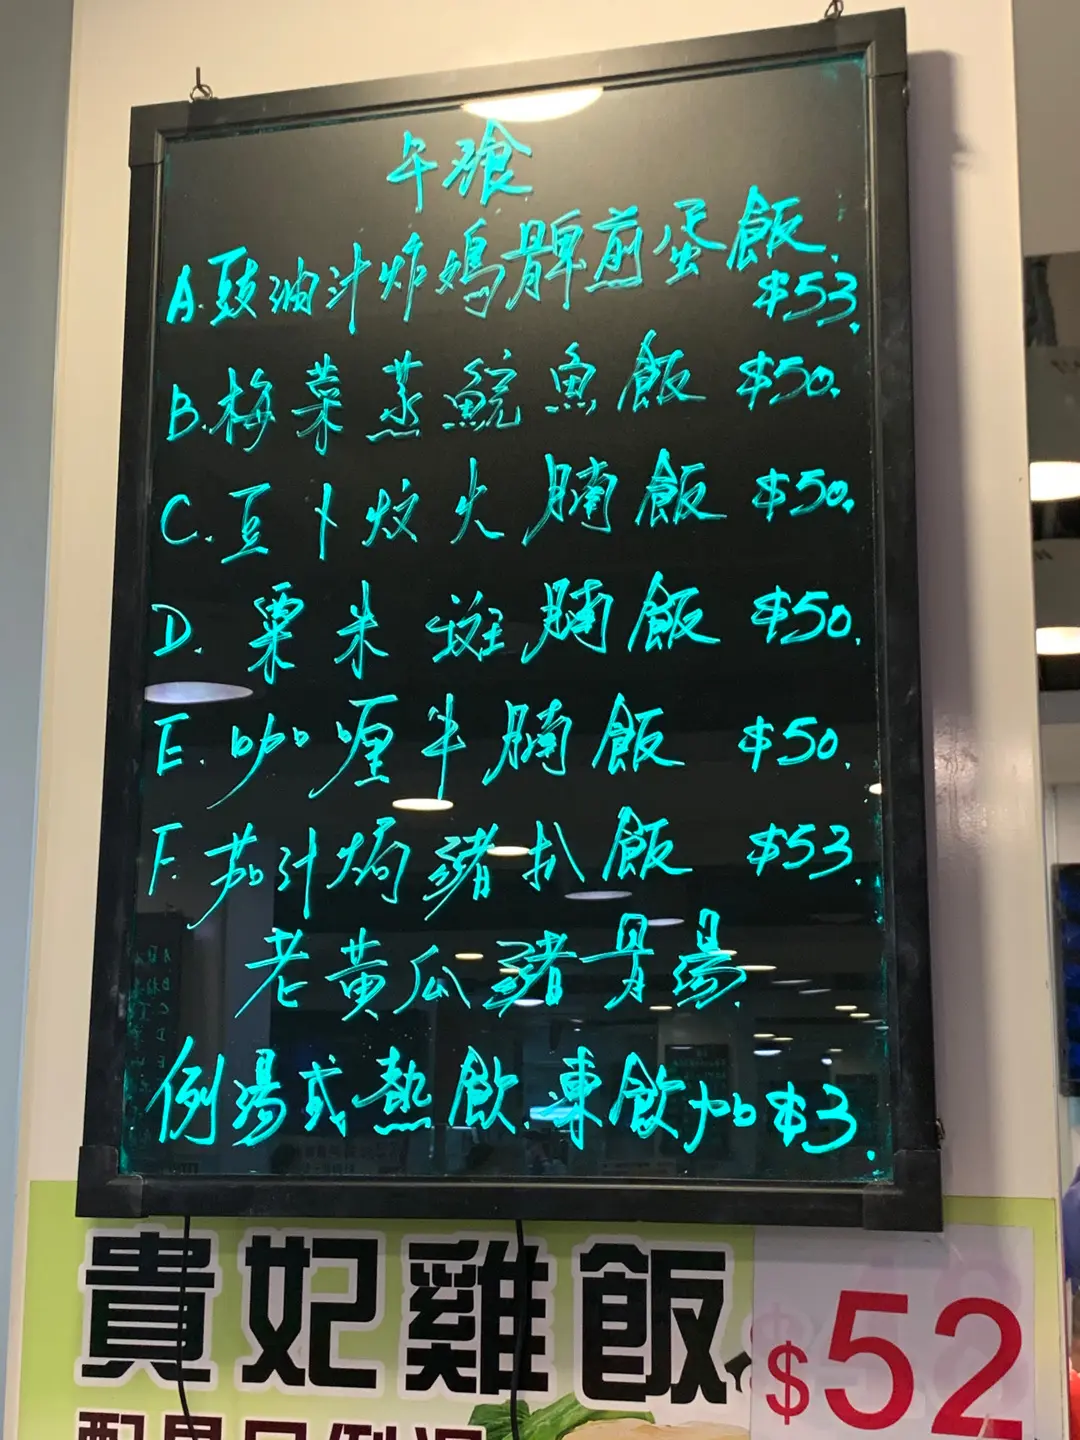 午飱
A.豉油汁炸鳮髀煎蛋飯.
$53.
B.梅菜蒸鯇魚飯 $50.
C.豆卜炆火腩飯 $50.
D.粟米斑腩飯 $50.
E.咖喱牛腩飯 $50.
F.茄汁焗豬扒飯 $53.
老黃瓜豬骨湯.
例湯或熱飲.凍飲加$3.
貴妃雞飯
$52